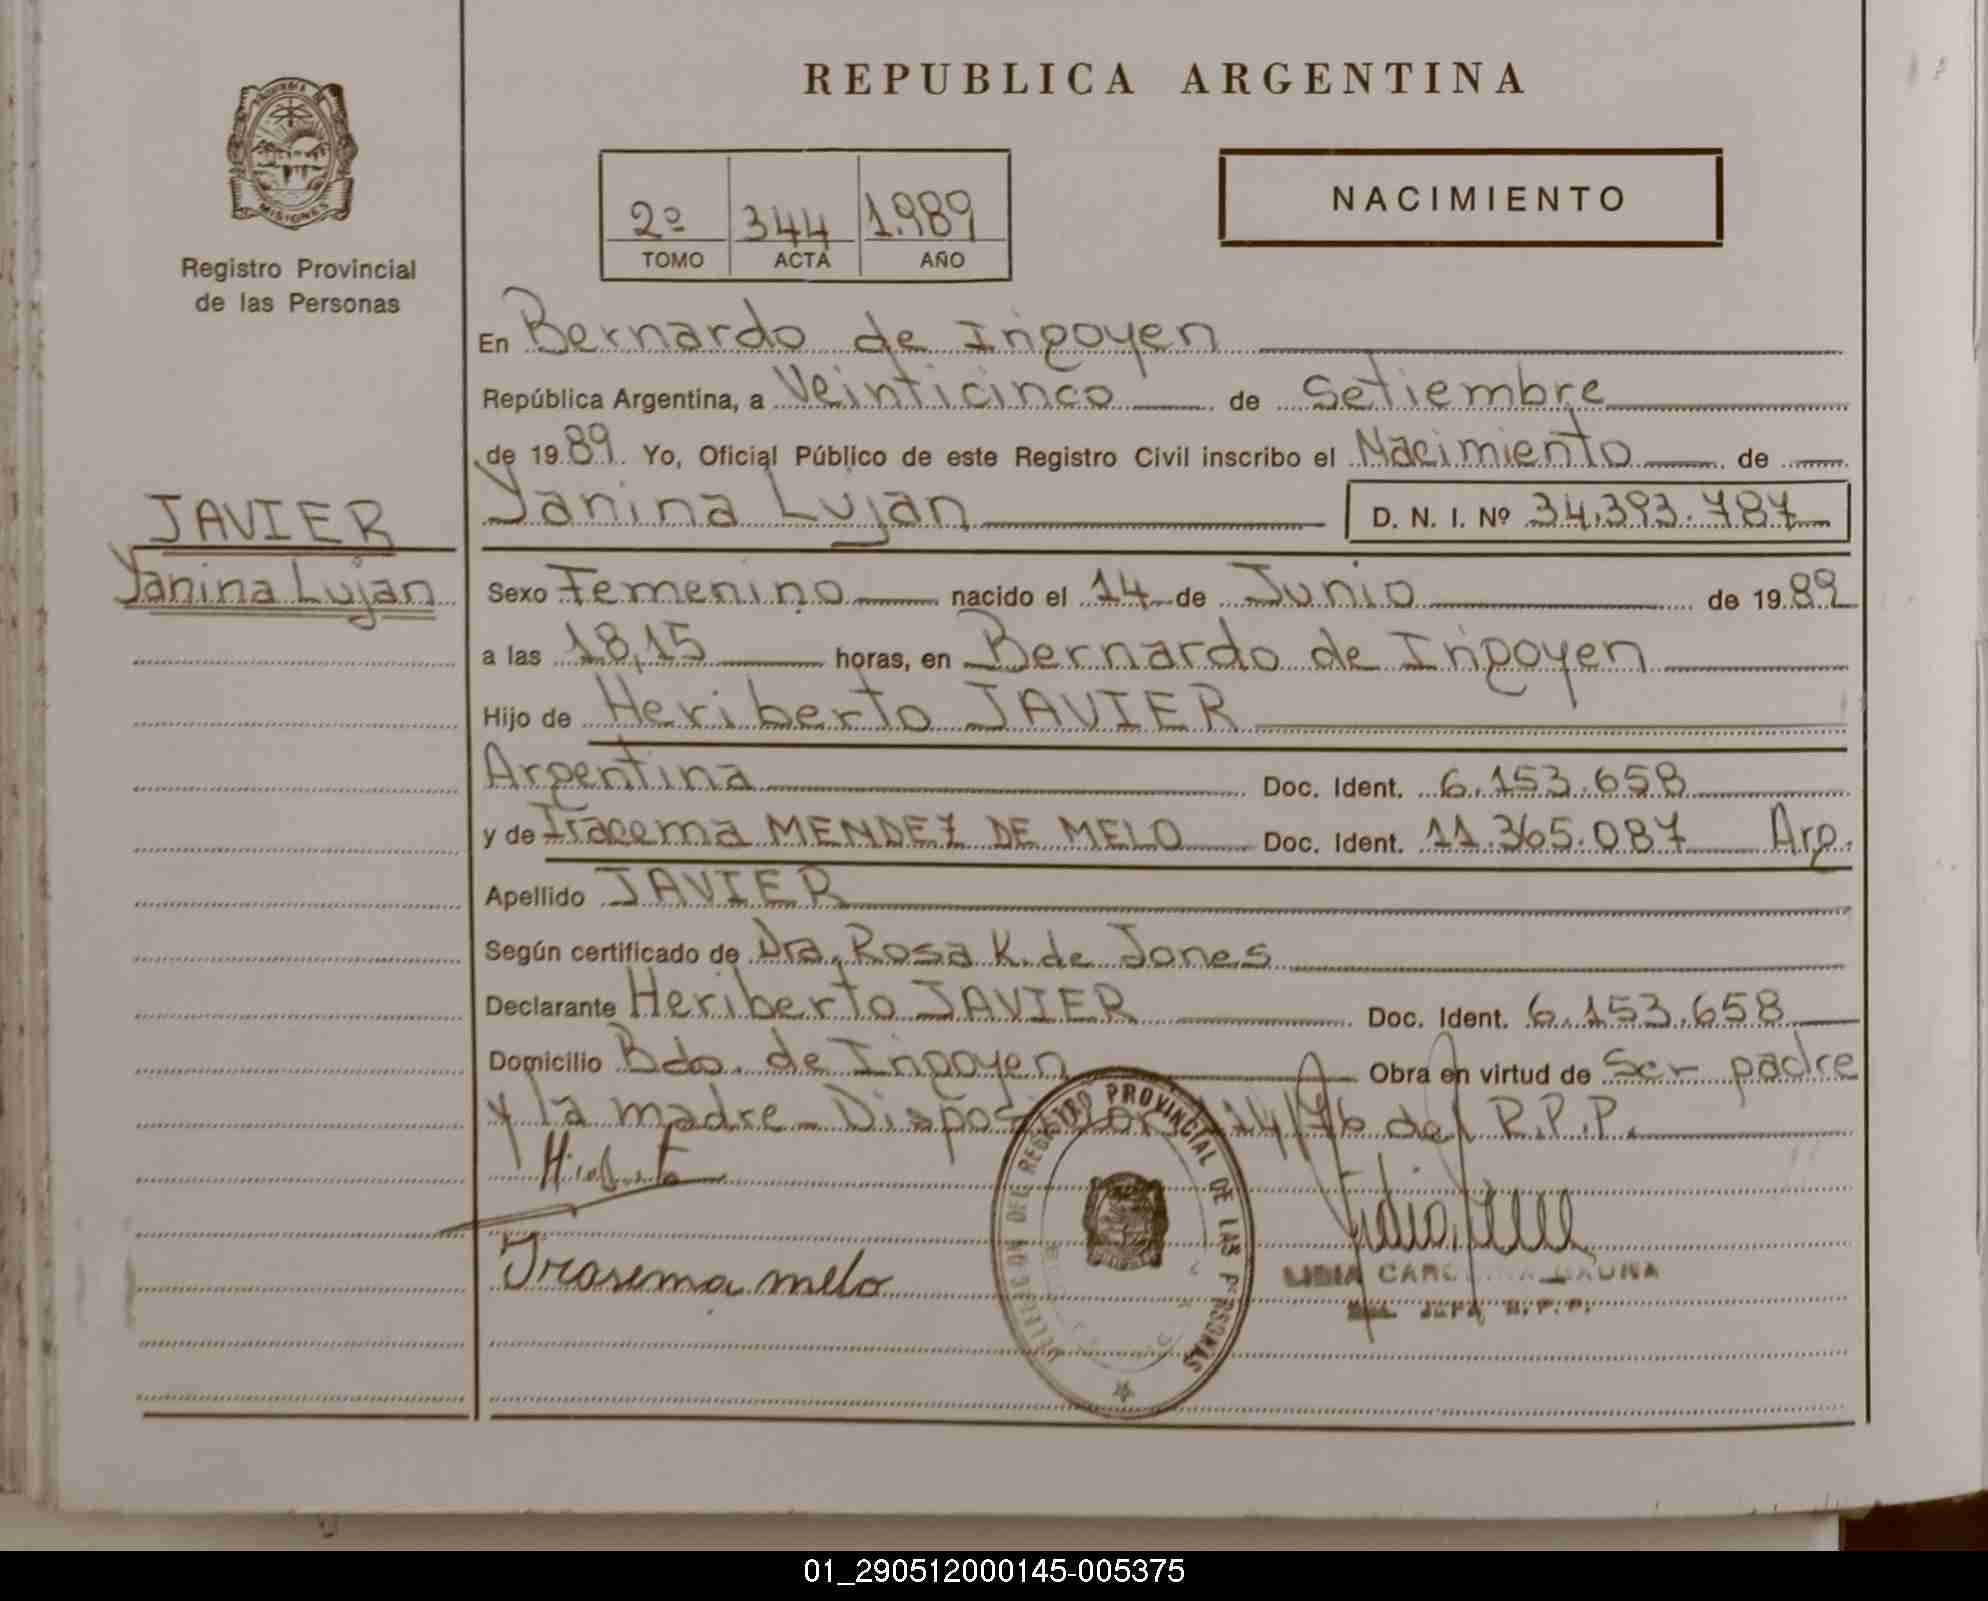 REPUBLICA ARGENTINA
PROVINCIA
MISIONES
Registro Provincial
de las Personas
2º 344 1.989
TOMO ACTA AÑO
NACIMIENTO
En Bernardo de Irigoyen
República Argentina, a Veinticinco de Setiembre
de 1989 Yo, Oficial Público de este Registro Civil inscribo el Nacimiento de
Yanina Lujan D. N. I. Nº 34.393.787
JAVIER
Yanina Lujan
Sexo Femenino nacido el 14 de Junio de 1989
a las 18,15 horas, en Bernardo de Irigoyen
Hijo de Heriberto JAVIER
Argentina Doc. Ident. 6.153.658
y de Iracema MENDEZ DE MELO Doc. Ident. 11.365.087 Arg.
Apellido JAVIER
Según certificado de Dra. Rosa K. de Jones
Declarante Heriberto JAVIER Doc. Ident. 6.153.658
Domicilio Bdo. de Irigoyen Obra en virtud de Ser padre
y la madre - Disposicion 114/76 del R.P.P.
Irasema melo
DEL REGISTRO PROVINCIAL DE LAS PERSONAS
LIDIA
JEFA R.P.P.
01_290512000145-005375